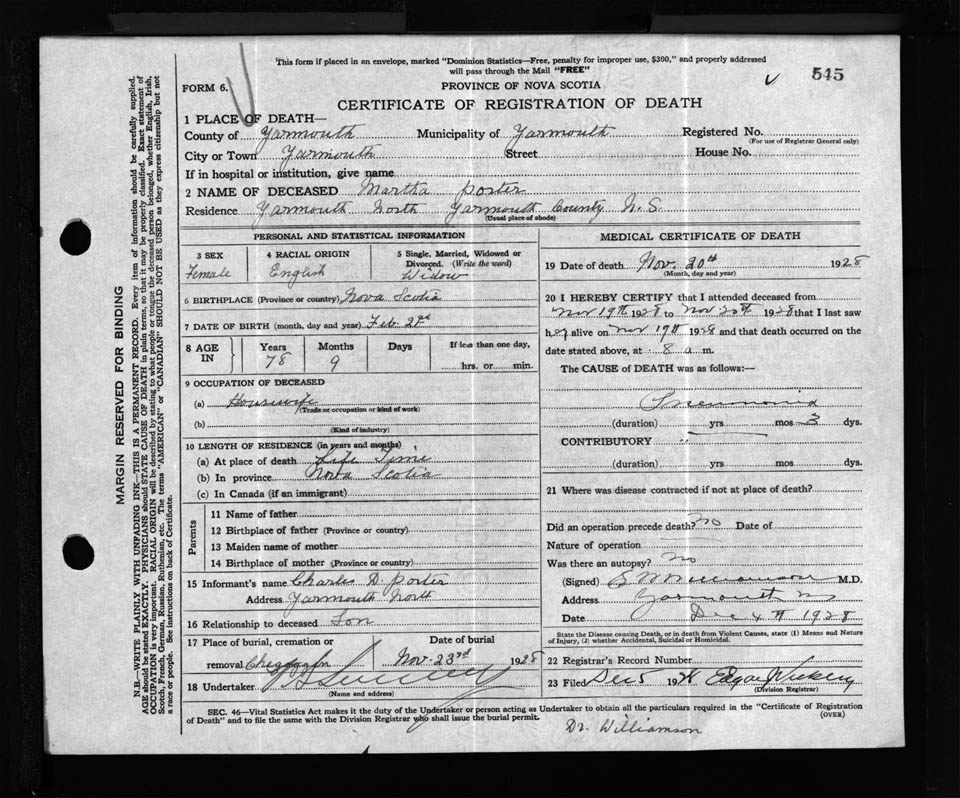 This form if placed in an envelope, marked "Dominion Statistics—Free, penalty for improper use, $300," and properly addressed
will pass through the Mail "FREE"
545
FORM 6.
PROVINCE OF NOVA SCOTIA
CERTIFICATE OF REGISTRATION OF DEATH
1 PLACE OF DEATH—
County of Yarmouth Municipality of Yarmouth Registered No.
(For use of Registrar General only)
City or Town Yarmouth Street House No.
If in hospital or institution, give name
2 NAME OF DECEASED Martha Porter
Residence Yarmouth North Yarmouth County N.S.
(Usual place of abode)
PERSONAL AND STATISTICAL INFORMATION
3 SEX
Female
4 RACIAL ORIGIN
English
5 Single, Married, Widowed or
Divorced. (Write the word)
Widow
6 BIRTHPLACE (Province or country) Nova Scotia
7 DATE OF BIRTH (month, day and year) Feb.
8 AGE IN Years Months Days If less than one day,
78 9 hrs. or min.
9 OCCUPATION OF DECEASED
(a) Housewife
(Trade or occupation or kind of work)
(b)
(Kind of industry)
10 LENGTH OF RESIDENCE (in years and months)
(a) At place of death Life Time
(b) In province Nova Scotia
(c) In Canada (if an immigrant)
Parents
11 Name of father
12 Birthplace of father (Province or country)
13 Maiden name of mother
14 Birthplace of mother (Province or country)
15 Informant's name Charles D. Porter
Address Yarmouth North
16 Relationship to deceased Son
17 Place of burial, cremation or
removal
Date of burial
Nov. 23rd 1928
18 Undertaker
(Name and address)
MEDICAL CERTIFICATE OF DEATH
19 Date of death Nov. 20th 1928
(Month, day and year)
20 I HEREBY CERTIFY that I attended deceased from
Nov 19th 1928 to Nov 20th 1928 that I last saw
her alive on Nov 19th 1928 and that death occurred on the
date stated above, at 8 a m.
The CAUSE of DEATH was as follows:—
Pneumonia
(duration) yrs mos 3 dys.
CONTRIBUTORY
(duration) yrs mos dys.
21 Where was disease contracted if not at place of death?
Did an operation precede death? No Date of
Nature of operation
Was there an autopsy? No
(Signed) Williamson M.D.
Address Yarmouth
Date Dec 4th 1928
State the Disease causing Death, or in death from Violent Causes, state (1) Means and Nature
of Injury, (2) whether Accidental, Suicidal or Homicidal.
22 Registrar's Record Number
23 Filed Dec 5 1928 Edgar
(Division Registrar)
SEC. 46—Vital Statistics Act makes it the duty of the Undertaker or person acting as Undertaker to obtain all the particulars required in the "Certificate of Registration
of Death" and to file the same with the Division Registrar who shall issue the burial permit.
(OVER)
Dr. Williamson
MARGIN RESERVED FOR BINDING
N.B.—WRITE PLAINLY WITH UNFADING INK—THIS IS A PERMANENT RECORD. Every item of information should be carefully supplied.
AGE should be stated EXACTLY. PHYSICIANS should STATE CAUSE OF DEATH in plain terms, so that it may be properly classified. Exact statement of
OCCUPATION is very important. RACIAL ORIGIN will be described by stating to what people or tongue the deceased person belonged, whether English, Irish,
Scotch, French, German, Russian, Ruthenian, etc. The terms "AMERICAN" or "CANADIAN" SHOULD NOT BE USED as they express citizenship but not
a race or people. See instructions on back of Certificate.